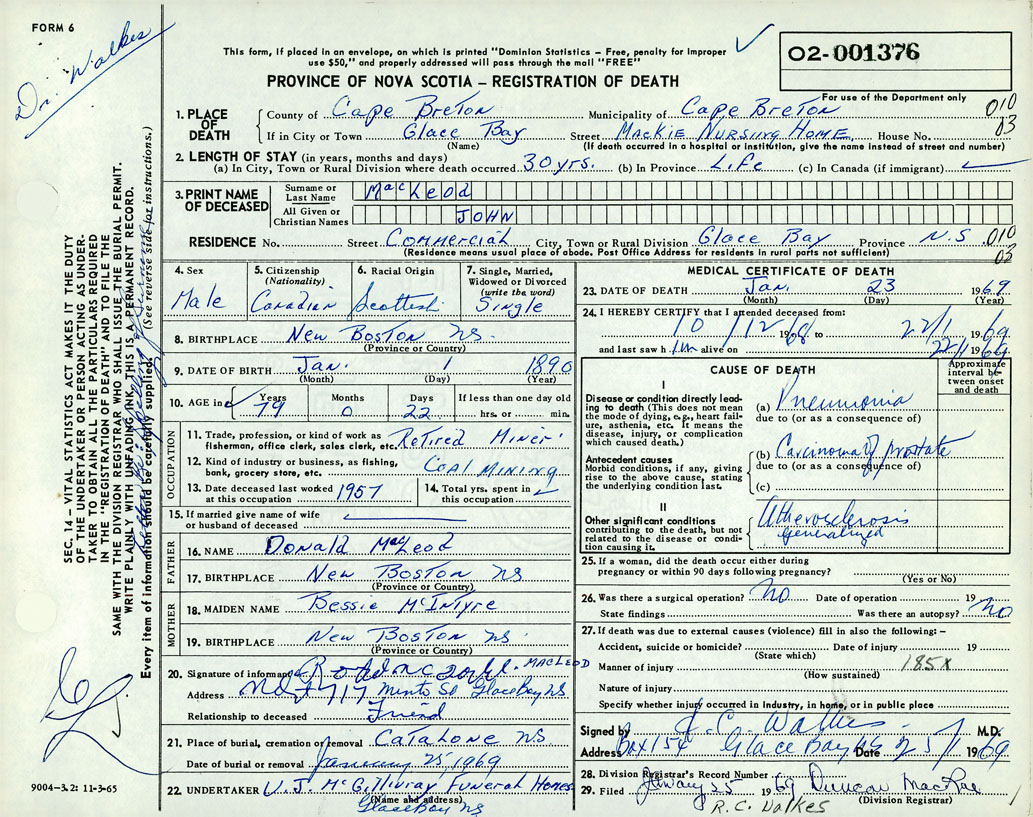 FORM 6
Dr. Walkes
This form, if placed in an envelope, on which is printed "Dominion Statistics – Free, penalty for improper
use $50," and properly addressed will pass through the mail "FREE"
PROVINCE OF NOVA SCOTIA – REGISTRATION OF DEATH
02-001376
For use of the Department only
010
03
1. PLACE OF DEATH
County of Cape Breton Municipality of Cape Breton
If in City or Town Glace Bay Street MacKie Nursing Home House No.
(Name) (If death occurred in a hospital or institution, give the name instead of street and number)
2. LENGTH OF STAY (in years, months and days)
(a) In City, Town or Rural Division where death occurred 30 yrs. (b) In Province Life (c) In Canada (if immigrant)
3. PRINT NAME OF DECEASED
Surname or Last Name MacLeod
All Given or Christian Names JOHN
RESIDENCE No. Street Commercial City, Town or Rural Division Glace Bay Province N.S 010
03
(Residence means usual place of abode. Post Office Address for residents in rural parts not sufficient)
4. Sex Male
5. Citizenship (Nationality) Canadian
6. Racial Origin Scottish
7. Single, Married, Widowed or Divorced (write the word) Single
8. BIRTHPLACE New Boston NS.
(Province or Country)
9. DATE OF BIRTH Jan. 1 1890
(Month) (Day) (Year)
10. AGE in Years 79 Months 0 Days 22 If less than one day old
hrs. or min.
OCCUPATION
11. Trade, profession, or kind of work as fisherman, office clerk, sales clerk, etc. Retired Miner
12. Kind of industry or business, as fishing, bank, grocery store, etc. Coal Mining
13. Date deceased last worked at this occupation 1957
14. Total yrs. spent in this occupation
15. If married give name of wife or husband of deceased
FATHER
16. NAME Donald MacLeod
17. BIRTHPLACE New Boston NS
(Province or Country)
MOTHER
18. MAIDEN NAME Bessie McIntyre
19. BIRTHPLACE New Boston NS.
(Province or Country)
20. Signature of informant MACLEOD
Address 717 Minto St Glace Bay NS
Relationship to deceased Friend
21. Place of burial, cremation or removal Catalone NS
Date of burial or removal January 25, 1969
22. UNDERTAKER V.J. McGillivray Funeral Homes
(Name and address)
Glace Bay NS
MEDICAL CERTIFICATE OF DEATH
23. DATE OF DEATH Jan. 23 1969
(Month) (Day) (Year)
24. I HEREBY CERTIFY that I attended deceased from:
10/12 1968 to 22/1 1969
and last saw h im alive on 22/1 1969
CAUSE OF DEATH
Approximate interval between onset and death
I
Disease or condition directly leading to death (This does not mean the mode of dying, e.g., heart failure, asthenia, etc. It means the disease, injury, or complication which caused death.)
(a) Pneumonia
due to (or as a consequence of)
Antecedent causes
Morbid conditions, if any, giving rise to the above cause, stating the underlying condition last.
(b) Carcinoma of prostate
due to (or as a consequence of)
(c)
II
Other significant conditions
contributing to the death, but not related to the disease or condition causing it.
Atherosclerosis
generalized
25. If a woman, did the death occur either during
pregnancy or within 90 days following pregnancy?
(Yes or No)
26. Was there a surgical operation? No Date of operation 19
State findings Was there an autopsy? No
27. If death was due to external causes (violence) fill in also the following:–
Accident, suicide or homicide? Date of injury 19
(State which)
Manner of injury 185X
(How sustained)
Nature of injury
Specify whether injury occurred in industry, in home, or in public place
Signed by Walkes M.D.
Address Box 154 Glace Bay NS Date 25/1 1969
28. Division Registrar's Record Number
29. Filed January 25 1969 Duncan MacRae
(Division Registrar)
R.C. Walkes
SEC. 14 – VITAL STATISTICS ACT MAKES IT THE DUTY
OF THE UNDERTAKER OR PERSON ACTING AS UNDER-
TAKER TO OBTAIN ALL THE PARTICULARS REQUIRED
IN THE "REGISTRATION OF DEATH" AND TO FILE THE
SAME WITH THE DIVISION REGISTRAR WHO SHALL ISSUE THE BURIAL PERMIT.
WRITE PLAINLY WITH UNFADING INK, THIS IS A PERMANENT RECORD.
Every item of information should be carefully supplied. (See reverse side for instructions.)
9004-3.2: 11-3-65